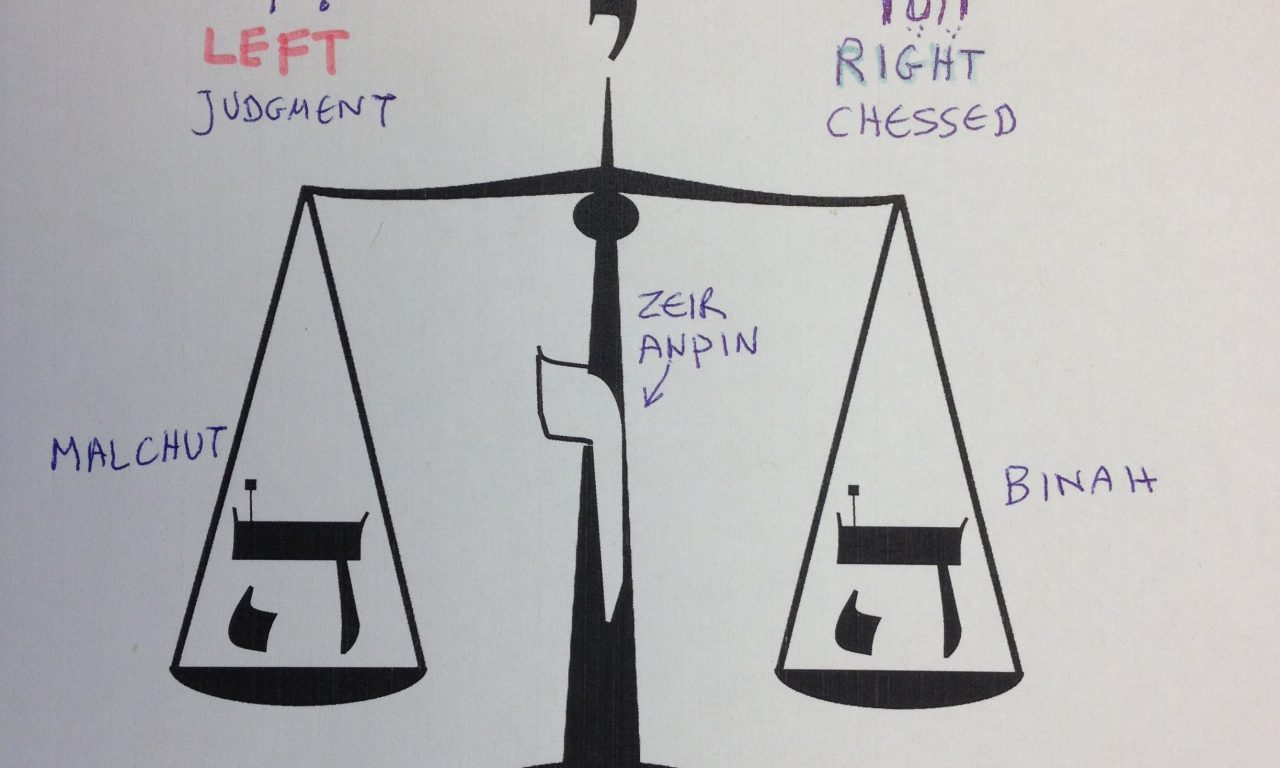 י
LEFT
RIGHT
JUDGMENT
CHESSED
ZEIR
ANPIN
ו
MALCHUT
BINAH
ה
ה